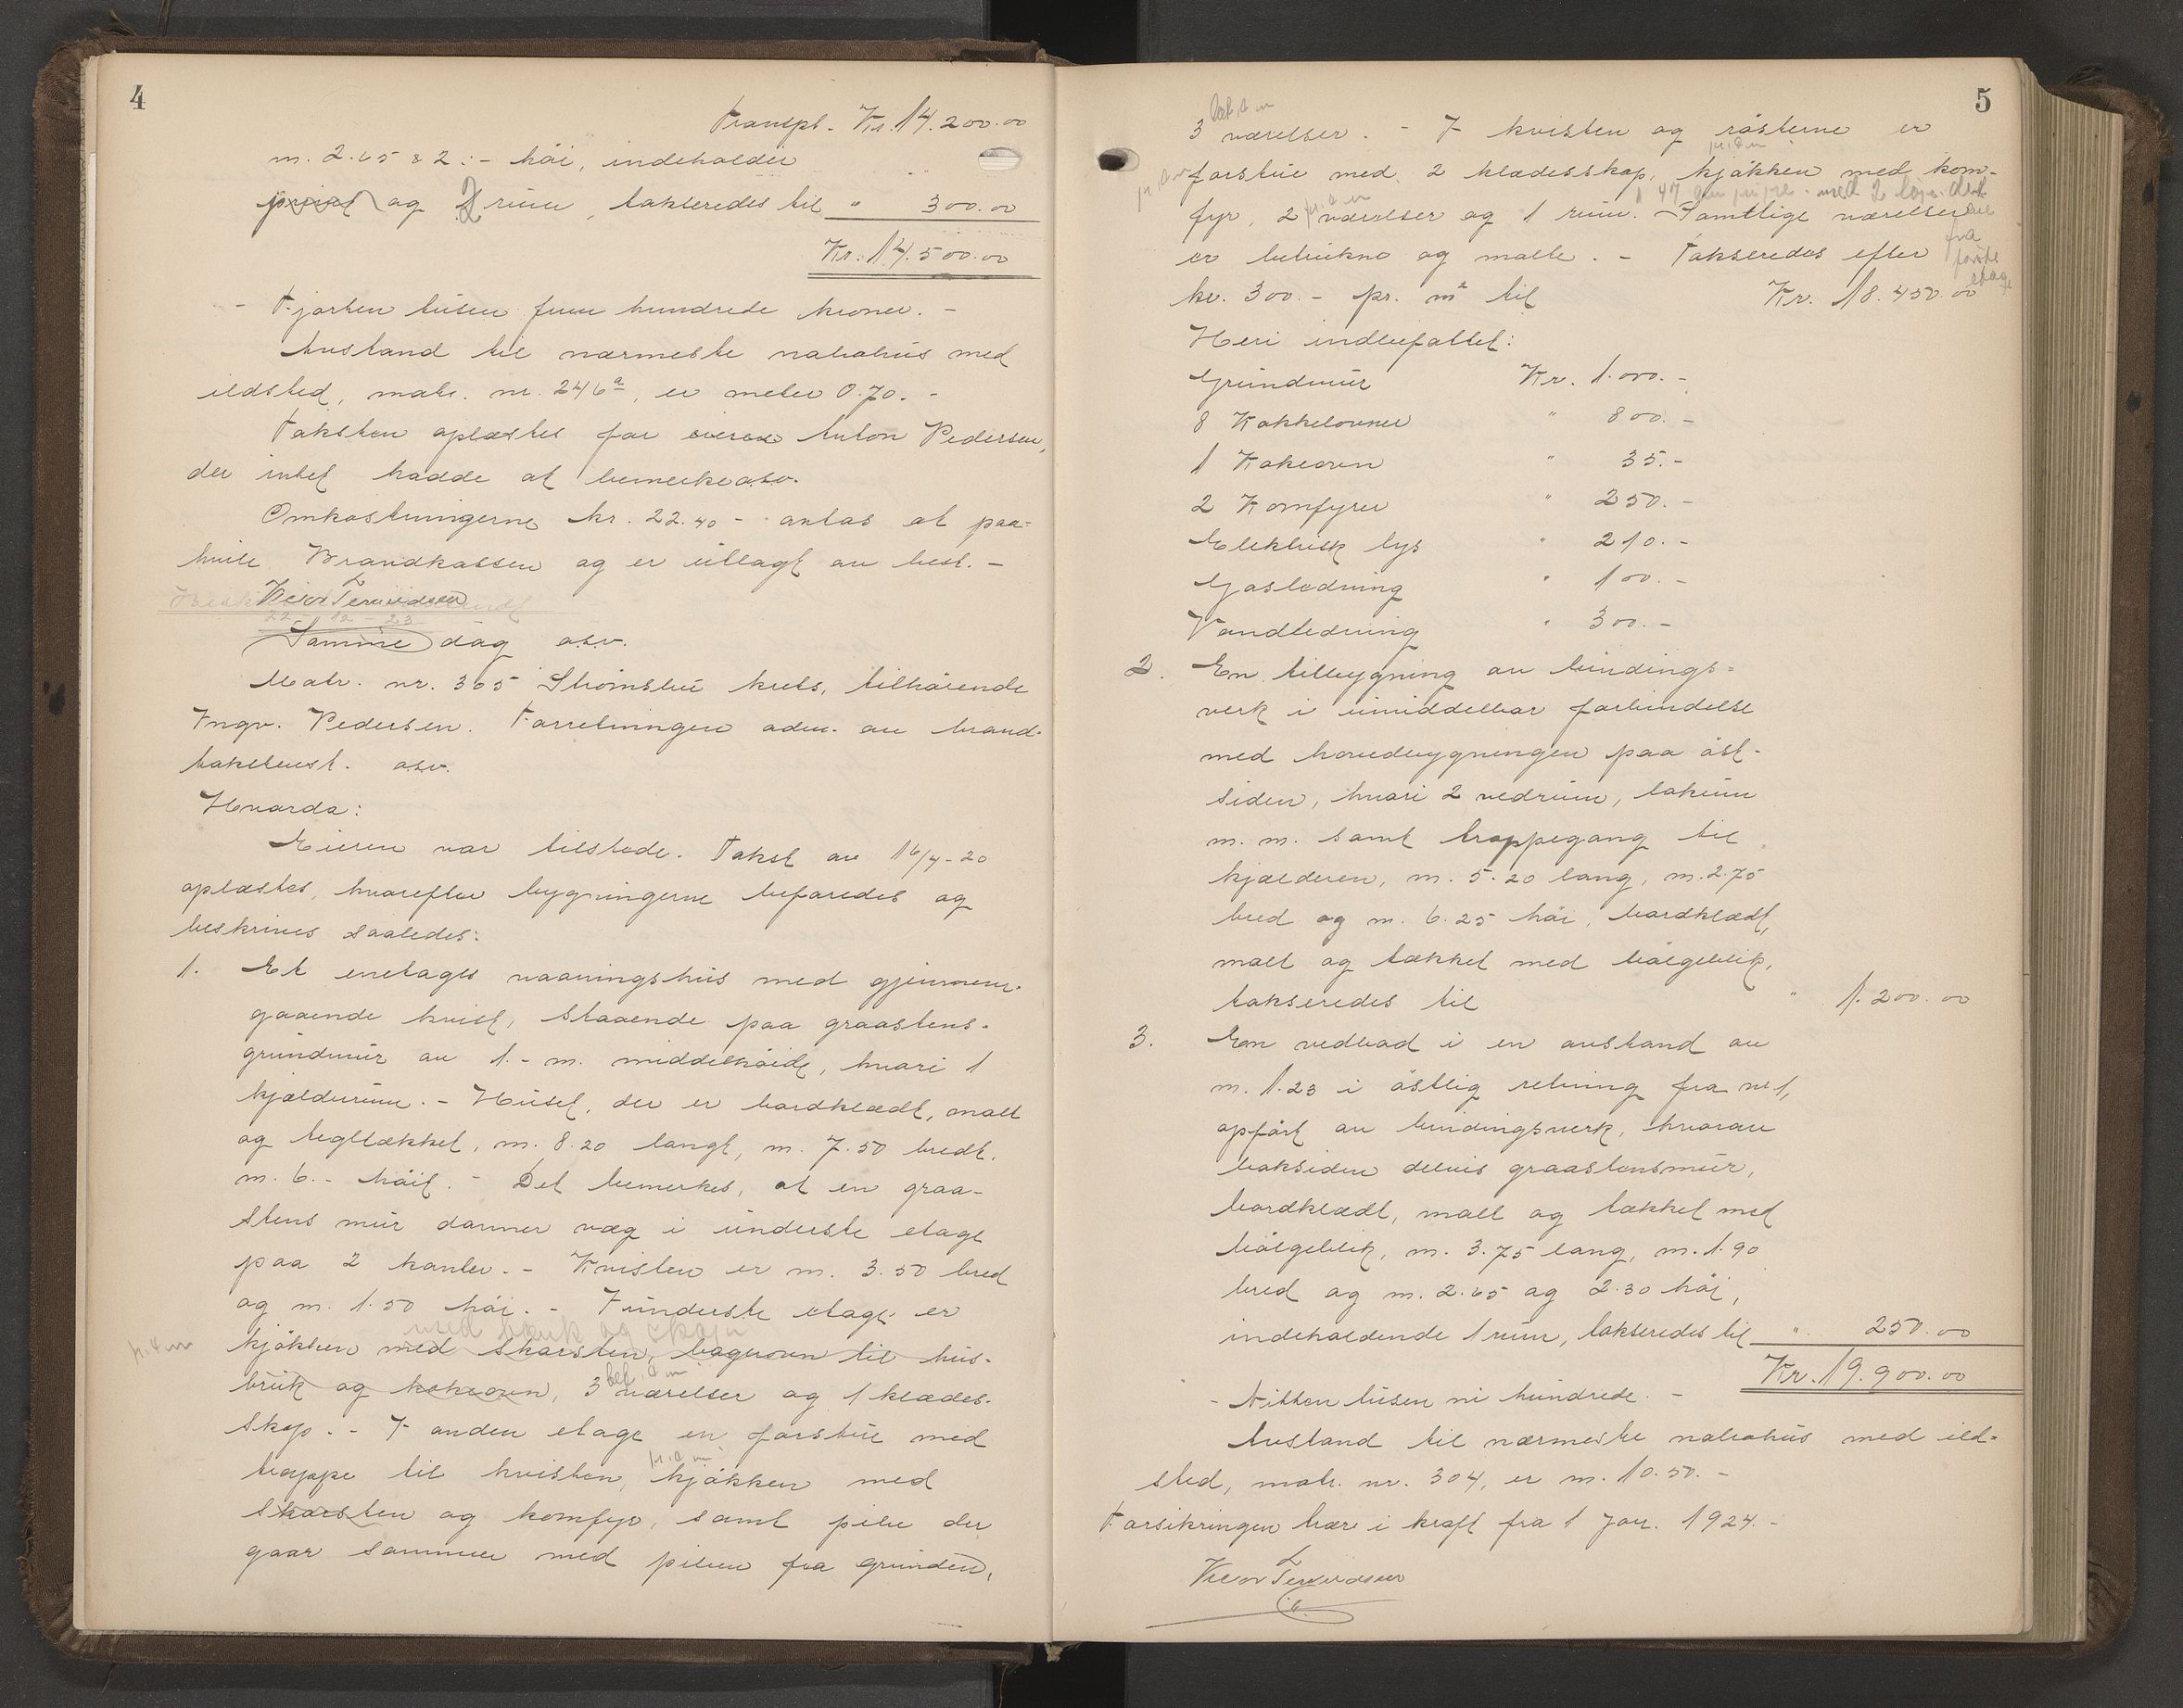 4
Transpt. Kr. 14.200.00
m. 2.65 & 2.- høi, indeholder
privet og 2 rum, takseredes til " 300.00
Kr. 14.500.00
- Fjorten tusen fem hundrede kroner. -
Avstand til nærmeste nabohus med
ildsted, matr. nr. 246a, er meter 0.70. -
Taksten oplæstes for eieren Anton Pedersen,
der intet hadde at bemerke osv.
Omkostningerne kr. 22.40 - antas at paa-
hvile Brandkassen og er utlagt av best. -
22-12-23
Samme dag osv.
Matr. nr. 305 Strømsbu krets, tilhørende
Ingv. Pedersen. Forretningen adm. av brand-
takstbest. osv.
Hvorda:
Eieren var tilstede. Takst av 16/4-20
oplæstes, hvorefter bygningerne befaredes og
beskrives saaledes:
1. Et enetages vaaningshus med gjennem-
gaaende kvist, staaende paa graastens-
grundmur av 1.- m. middelhøide, hvori 1
kjælderrum. - Huset, der er bordklædt, malt
og tegltækket, m. 8.20 langt, m. 7.50 bredt,
m. 6.- høit. - Det bemerkes, at en graa-
stens mur danner væg i underste etage
paa 2 kanter. - Kvisten er m. 3.50 bred
og m. 1.50 høi. - I underste etage er
med benk og skap
kjøkken med skorsten, bagerovn til hus-
bruk og kokeovn, 3 værelser og 1 klædes-
skap. - I anden etage en forstue med
trappe til kvisten, kjøkken med
skorsten og komfyr, samt pibe der
gaar sammen med piben fra grunden,
5
3 værelser. - I kvisten og røsterne er
forstue med 2 klædesskap, kjøkken med kom-
fyr, 2 værelser og 1 rum. - Samtlige værelser
fra
første
etage
er betrukne og malte. - Takseredes efter
kr. 300.- pr. m² til Kr. 18.450.00
Heri indbefattet:
Grundmur Kr. 1.000.-
8 Kakkelovner " 800.-
1 Kokeovn " 35.-
2 Komfyrer " 250.-
Elektrisk lys " 210.-
Gasledning " 100.-
Vandledning " 300.-
2. En tilbygning av bindings-
verk i umiddelbar forbindelse
med hovedbygningen paa øst-
siden, hvori 2 vedrum, lokum
m. m. samt trappegang til
kjælderen, m. 5.20 lang, m. 2.75
bred og m. 6.25 høi, bordklædt,
malt og tækket med bølgeblik,
takseredes til " 1.200.00
3. En vedbod i en avstand av
m. 1.23 i østlig retning fra nr 1,
opført av bindingsverk, hvorav
baksiden delvis graastensmur,
bordklædt, malt og tækket med
bølgeblik, m. 3.75 lang, m. 1.90
bred og m. 2.65 og 2.30 høi,
indeholdende 1 rum, takseredes til " 250.00
Kr. 19.900.00
- Nitten tusen ni hundrede. -
Avstand til nærmeste nabohus med ild-
sted, matr. nr. 304, er m. 10.50. -
Forsikringen bær i kraft fra 1 Jan. 1924. -